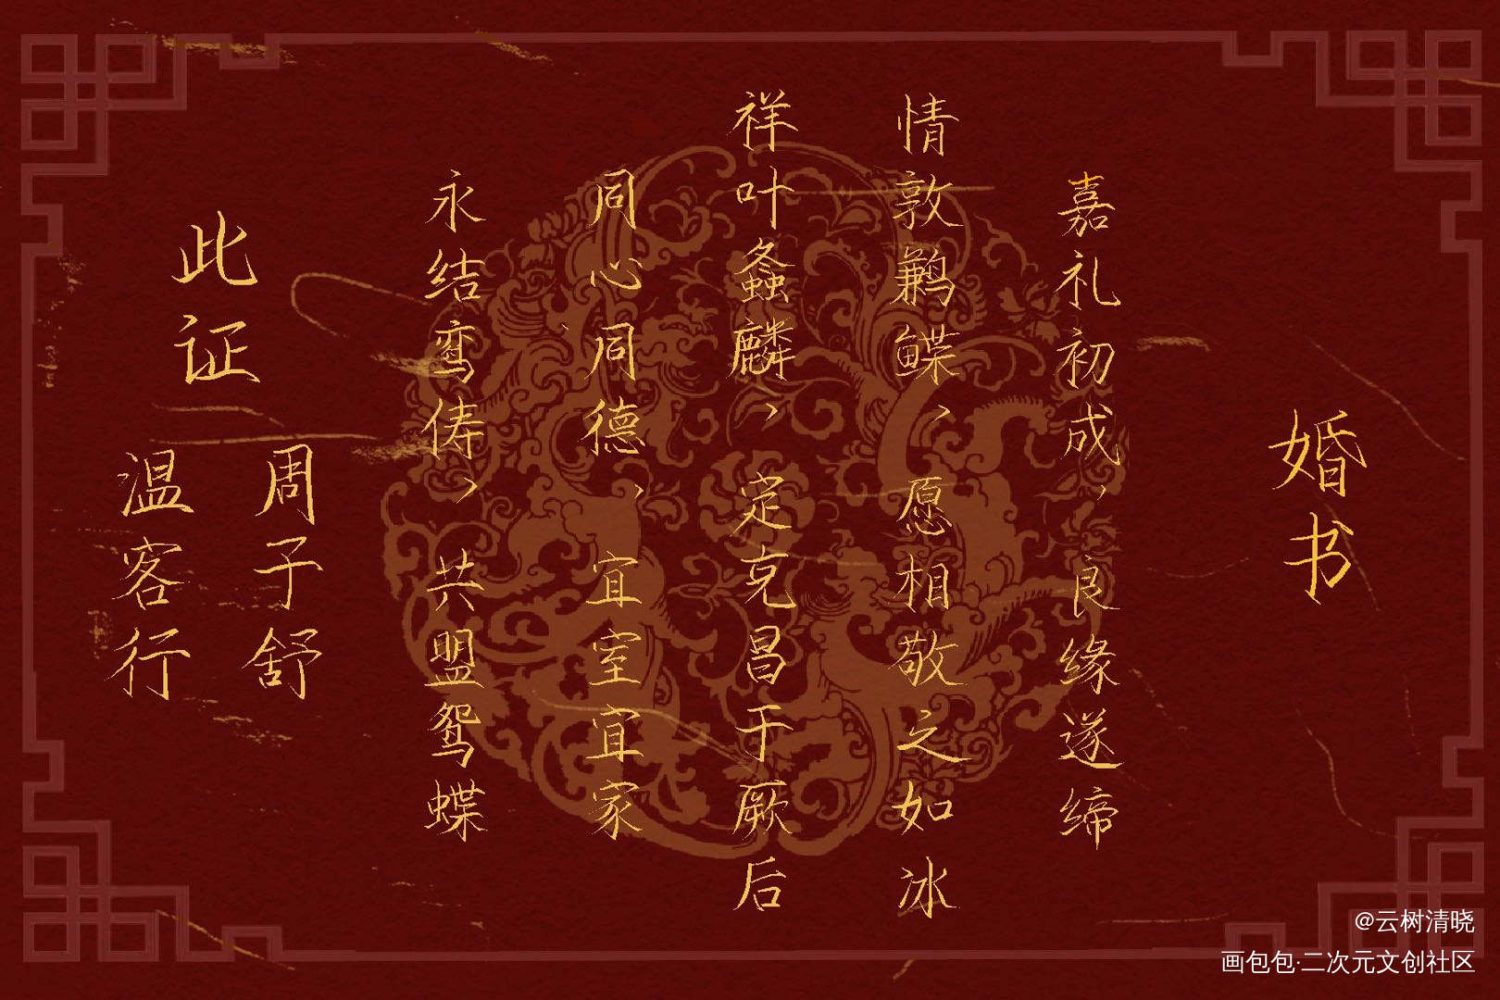 婚书
嘉礼初成、良缘遂缔
情敦鹣鲽、愿相敬之如冰
祥叶螽麟、定克昌于厥后
同心同德、宜室宜家
永结鸾俦、共盟鸳蝶
此证
周子舒
温客行
@云树清晓
画包包·二次元文创社区